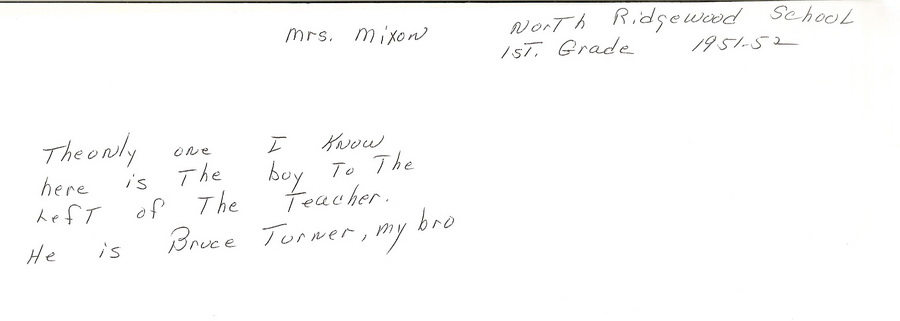 Mrs. Mixon
North Ridgewood School
1st. Grade 1951-52
The only one I know
here is the boy to the
Left of the Teacher.
He is Bruce Turner, my bro